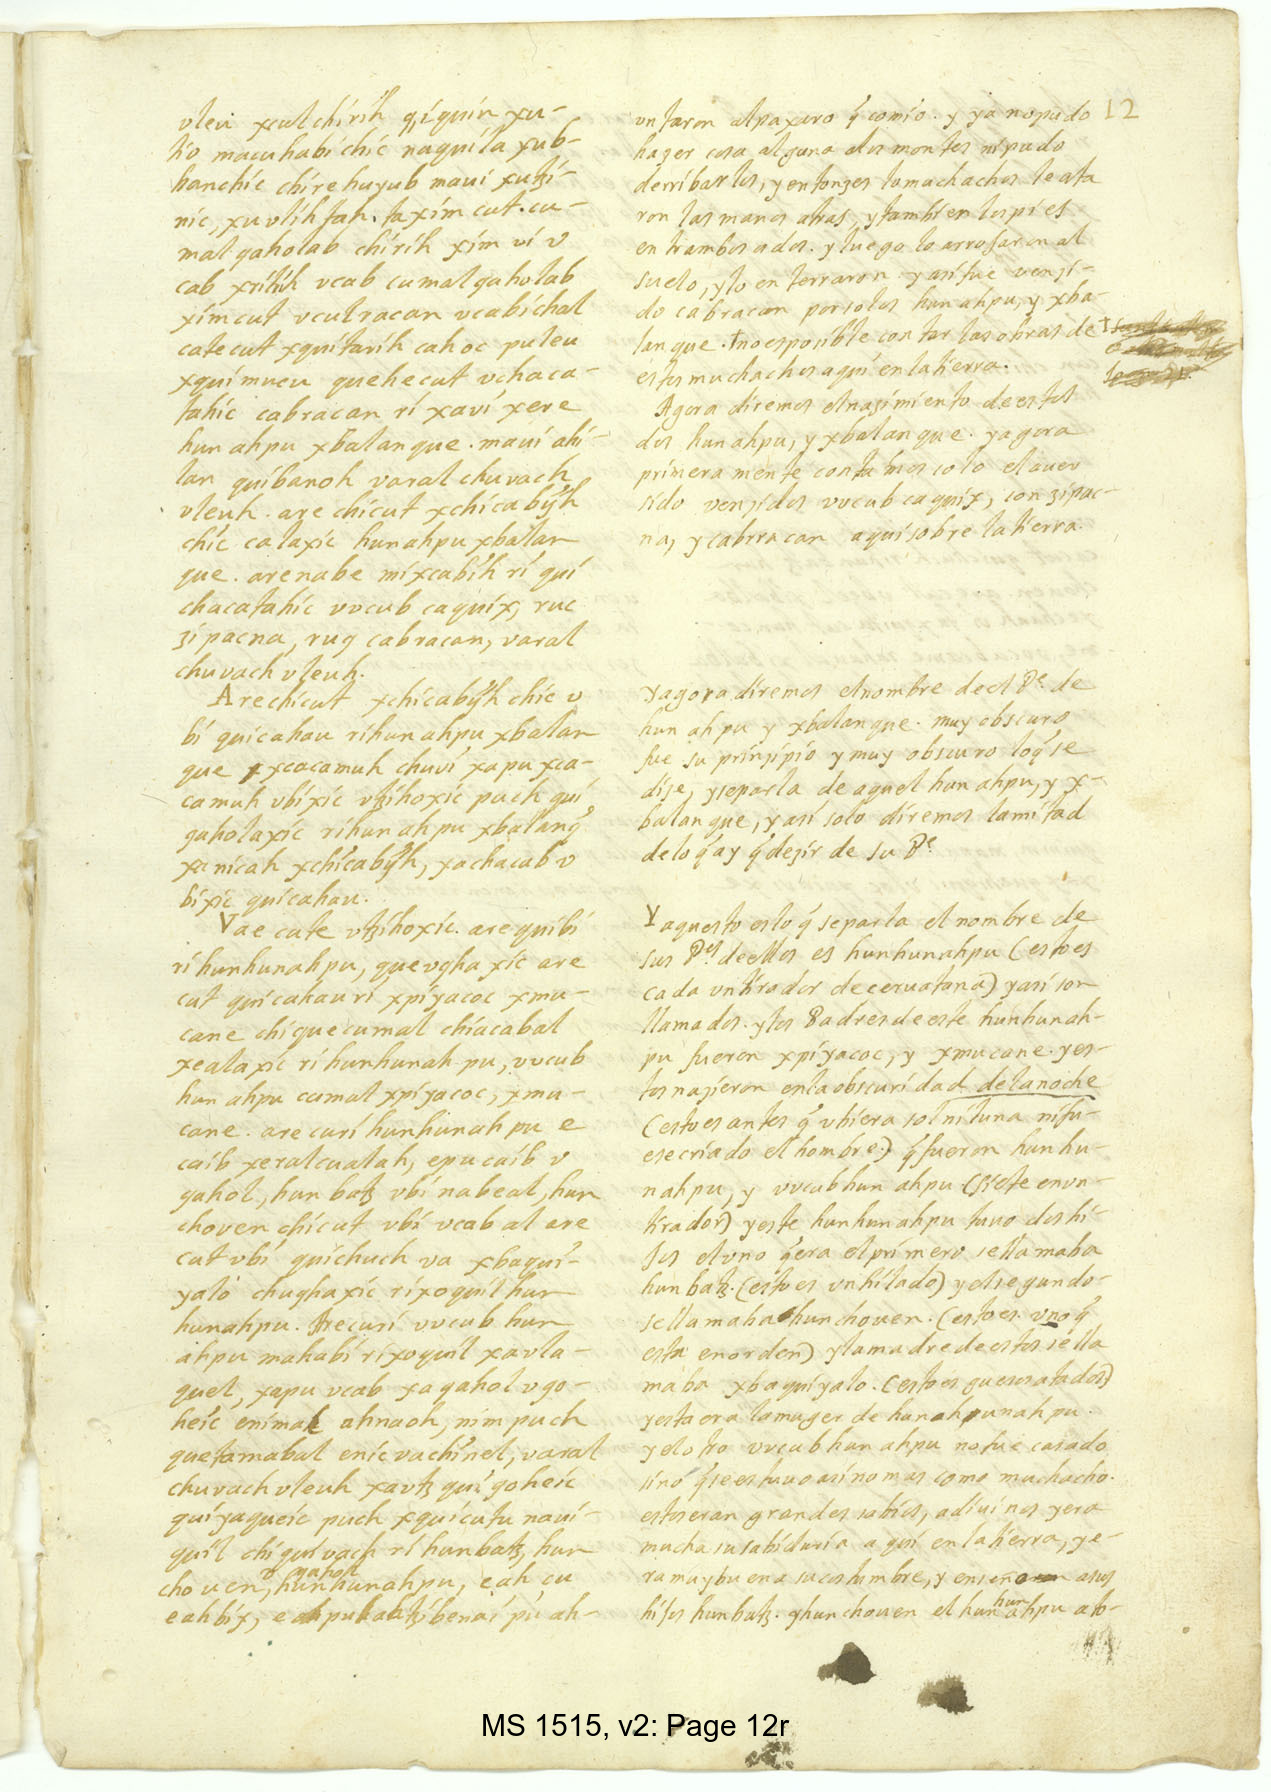 12
vleu xcul chirih q,iquin xu-
tio macuhabi chic naquila xub-
hanchic chirehuyub maui xutzi-
nic, xuvlih tah. ta xim cut. cu-
mal gaholab chirih xim vi v
cab xrihih vcab cumal gaholab
ximcut vculracan vcabichal
catecut xquitarih cahoc puleu
xquimucu quehecut vchaca-
tahic cabracan ri xaui xere
hun ahpu xbalanque. maui ahi-
lan quibanoh varal chuvach
vleuh. are chicut xchicabijh
chic calaxic hunahpu xbalan
que. are nabe mixcabih ri qui
chacatahic vvcub caquix, ruc
zipacna, ruq cabracan, varal
chuvach vleuh.
Arechicut xchicabijh chic v
bi quicahau rihunahpu xbalan
que xcacamuh chuvi xapu xca-
camuh vbixic vtzihoxic puch qui
gaholaxic rihunahpu xbalanq̃
xa nicah xchicabijh, xachacab v
bixic quicahau.
Vae cute vtzihoxic. are quibi
ri hunhunahpu, quevghaxic are
cut quicahau ri xpiyacoc xmu-
cane chi quecumal chiacabal
xealaxic ri hunhunah pu, vvcub
hun ahpu cumal xpiyacoc, xmu-
cane. are curi hunhunah pu e
caib xeralcualah, epu caib v
gahol, hun batz vbi nabeal, hun
choven chicut vbi vcab al are
cut vbi quichuch va xbaqui-
yalo chughaxic rixoquil hun
hunahpu. Arecuri vvcub hun
ahpu mahabi rixoquil xavla-
quel, xapu vcab xagahol vgo-
heic enimak ahnaoh, nim puch
quetamabal enic vachinel, varal
chuvach vleuh xavtz qui goheic
quiyaqueic puch xquicutu naui-
quil chiquivach ri hunbatz, hun
v gahol
chouen, hunhunahpu, eah cu
eahbix, e ahpubabtzibenai pu ah-
untaron alpaxaro q̃ comio. y ya nopudo
hazer cosa alguna alos montes nipudo
derribarlos, y entonzes losmuchachos le ata
ron las manos atras, y tambien los pies
entrambos ados. y luego lo arrosaron al
suelo, y lo enterraron y asi fue venzi-
do cabracan porsolos hunahpu, y xba-
lanque. noesposible contar las obras de
estos muchachos aqui enlatierra.
Agora diremos elnazimiento deestos
dos hunahpu, y xbalanque. yagora
primera mente contamos solo elauer
sido venzidos vvcub caquix, con zipac-
na, y cabrracan aqui sobre latierra.
Yagora diremos elnombre deel Pe. de
hun ahpu y xbalanque. muy obscuro
fue su prinzipio y muy obscuro loq̃ se
dize, yseparla de aquel hunahpu, y x-
balanque, yasi solo diremos lamitad
delo q̃ ay q̃ dezir de su Pe.
Yaquesto eslo q̃ separla el nombre de
sus Pes. deellos es hunhunahpu (estoes
cada vntirador deceruatana) yasi son
llamados. ylos Padresdeeste hunhunah-
pu fueron xpiyacoc, y xmucane. yes-
tosnazieron enlaobscuridad delanoche
(estoes antes q̃ vbiera sol niluna nifu-
esecriado el hombre.) q̃fueron hunhu-
nahpu, y vvcubhun ahpu (siete enun-
tirador) yeste hunhunahpu tuuo dos hi-
jos eluno q̃era elprimero sellamaba
hunbatz. (estoes vnhilado) yelsegundo-
sellamaba hunchouen. (estoes. vno q̃
esta enorden) ylamadredeestos sella
maba xbaquiyalo. (estoes guesosatados)
yestaera lamuger de hunahpunahpu.
yelotro vvcubhun ahpu nofue casado
sino q̃seestuuoasinomas como muchacho.
estoseran grandes sabios, adiuinos yera
mucha susabiduria aqui enlatierra, ye-
ramuybuena sucostumbre, y enseño asus
hun
hijos hunbatz. yhunchouen el hun ahpu ab-
MS 1515, v2: Page 12r